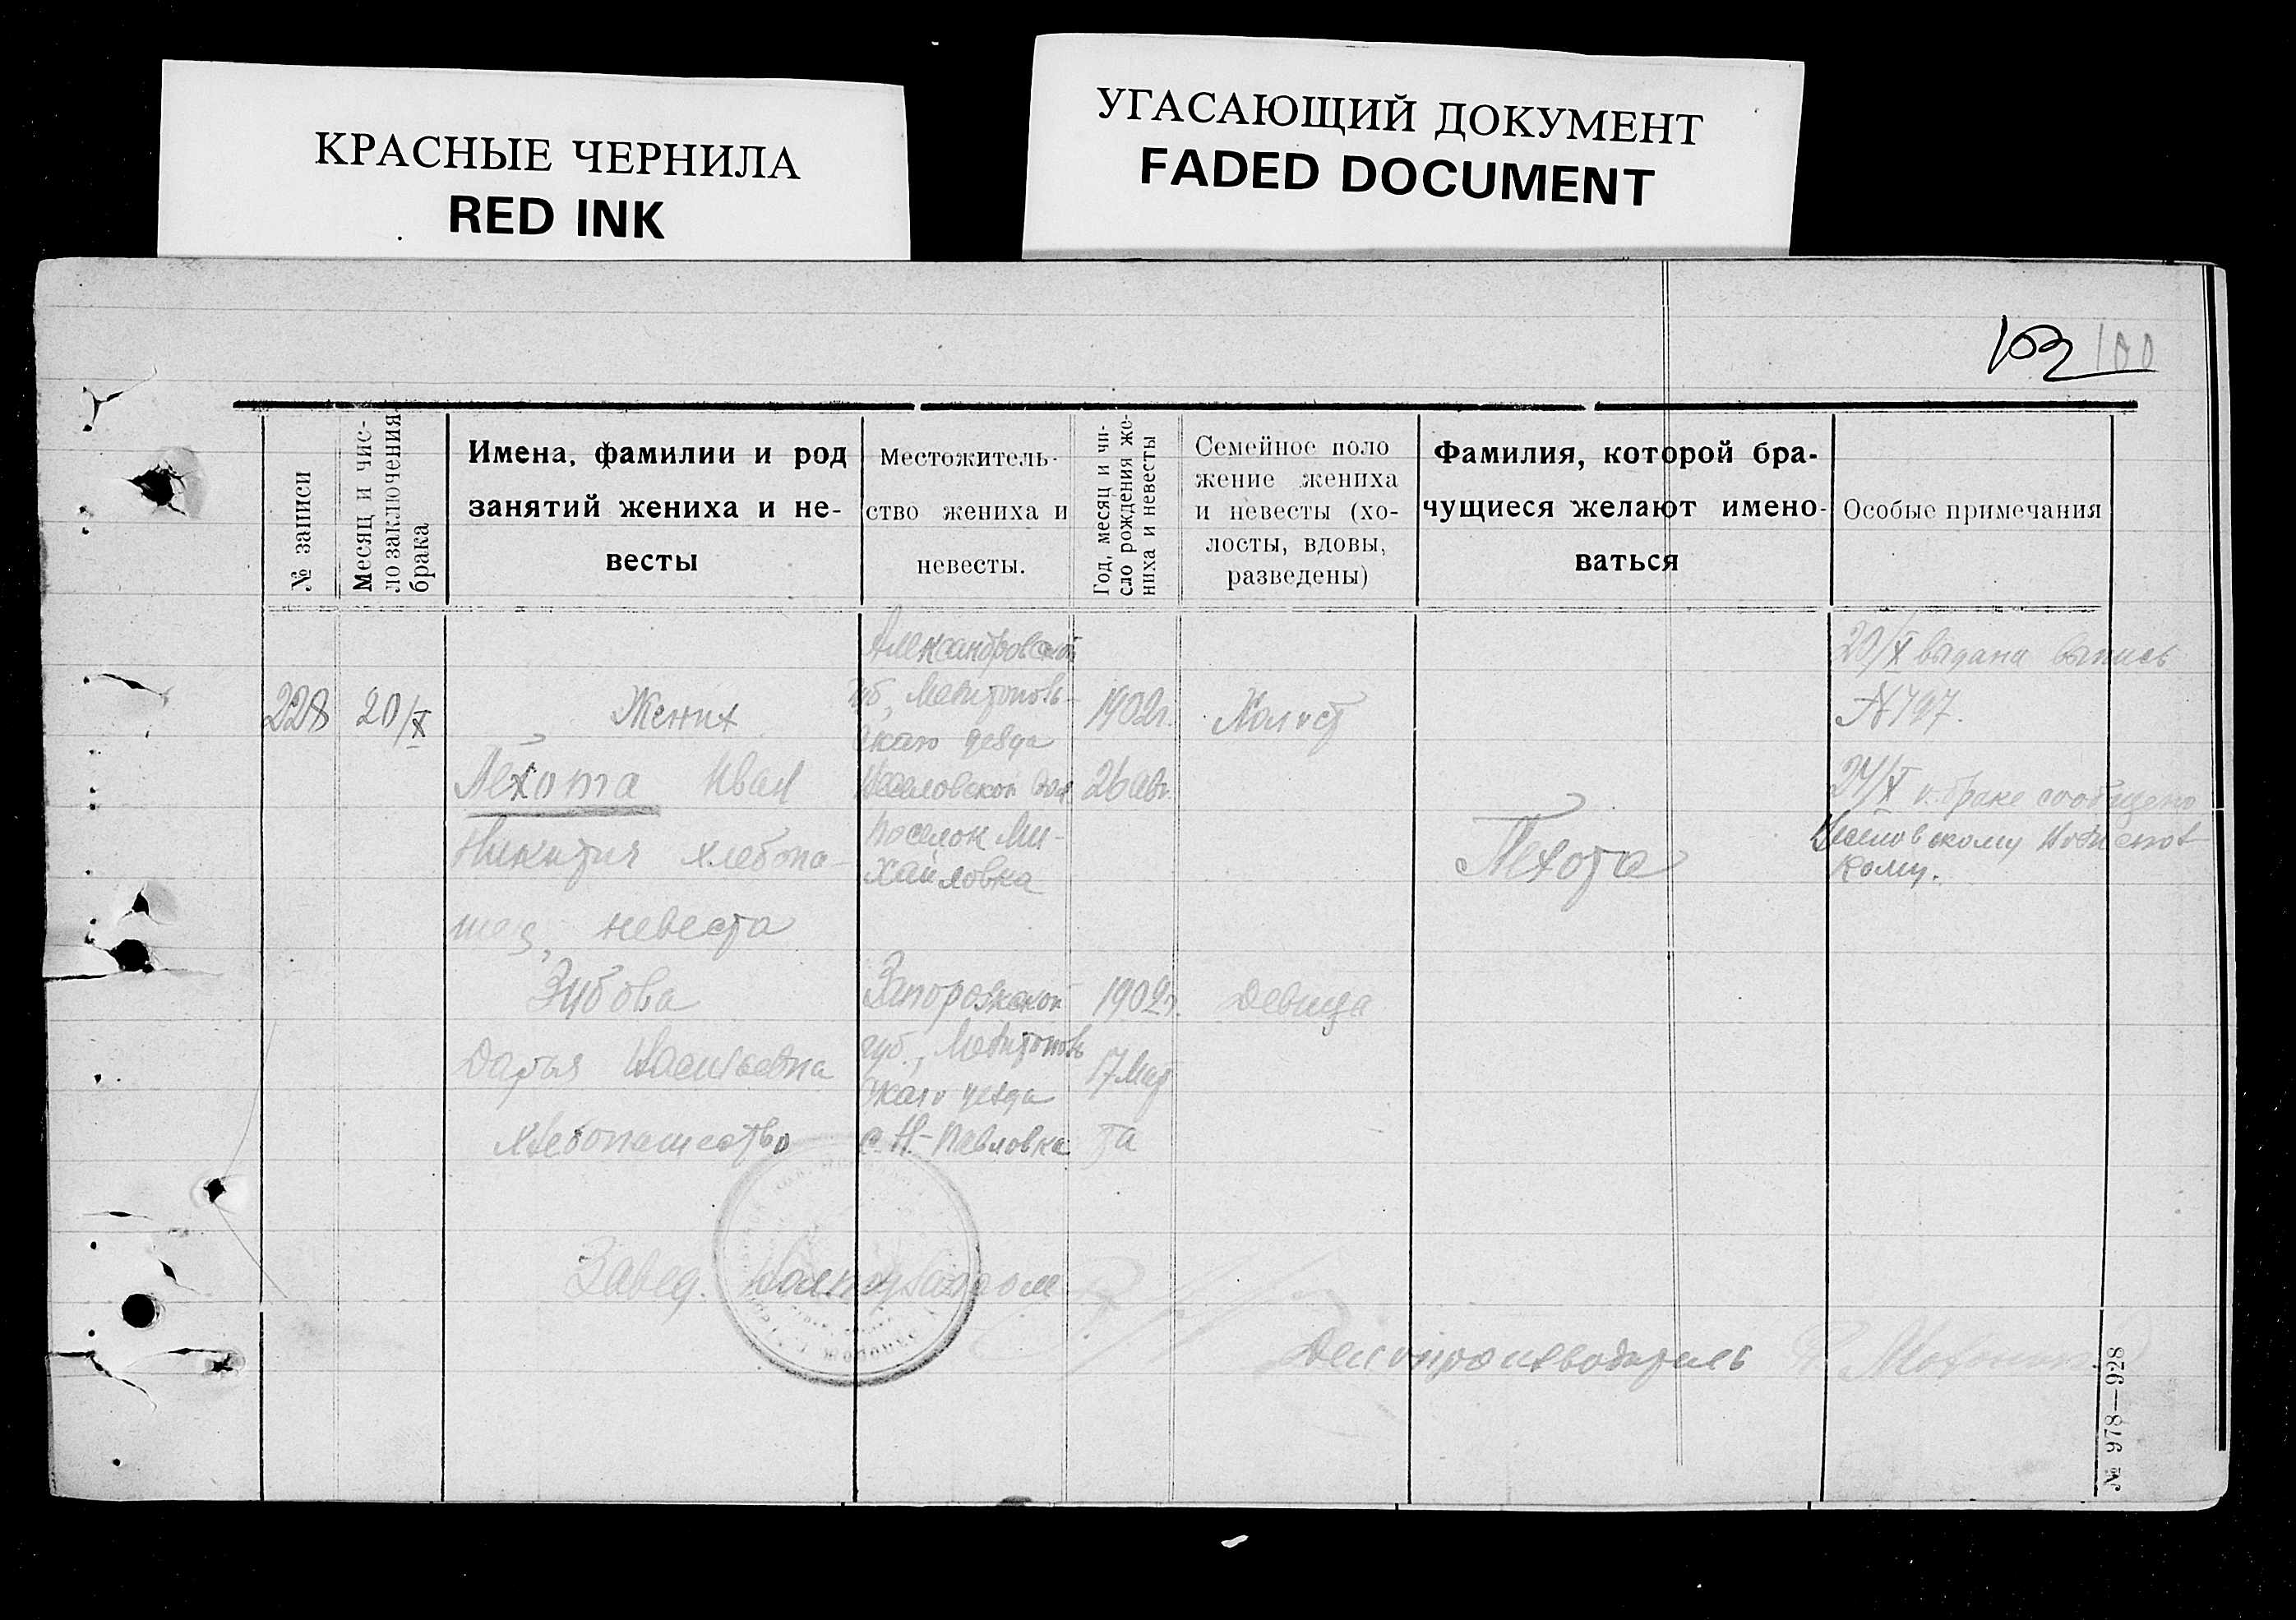 КРАСНЫЕ ЧЕРНИЛА
RED INK
УГАСАЮЩИЙ ДОКУМЕНТ
FADED DOCUMENT
103 100
№ записи
Месяц и чис-
ло заключения
брака
Имена, фамилии и род
занятий жениха и не-
весты
Местожитель-
ство жениха и
невесты.
Год, месяц и чи-
сло рождения же-
ниха и невесты
Семейное поло
жение жениха
и невесты (хо-
лосты, вдовы,
разведены)
Фамилия, которой бра-
чущиеся желают имено-
ваться
Особые примечания
228
20/X
Жених
Пехота Иван
Никитич хлебопа-
шец, невеста
Зубова
Дарья Васильевна
хлебопашество
Александровской
губ, Мелитополь-
скаго уезда
поселок Ми-
хайловка
Запорожской
губ., Мелитополь
скаго уезда
с. Н-Павловка
1902г.
26 авг.
1902г.
17 Мар
та
Холост
Девица
Пехота
20/X выдана выпись
№ 797.
24/X о браке сообщено
кому.
Завед.
Делопроизводитель
№ 978—928